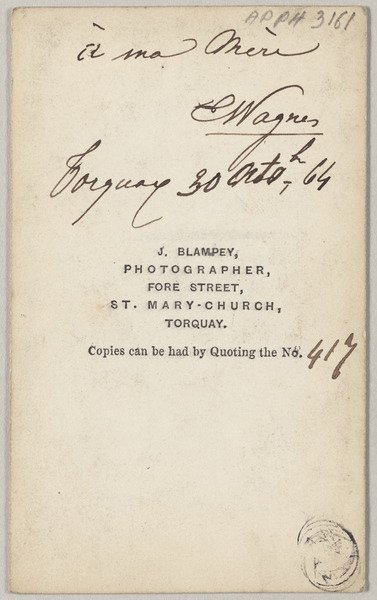 APPH 3161
à ma Mère
C Wagner
Torquay 30 Octo, 64
J. BLAMPEY,
PHOTOGRAPHER,
FORE STREET,
ST. MARY-CHURCH,
TORQUAY.
Copies can be had by Quoting the No. 417